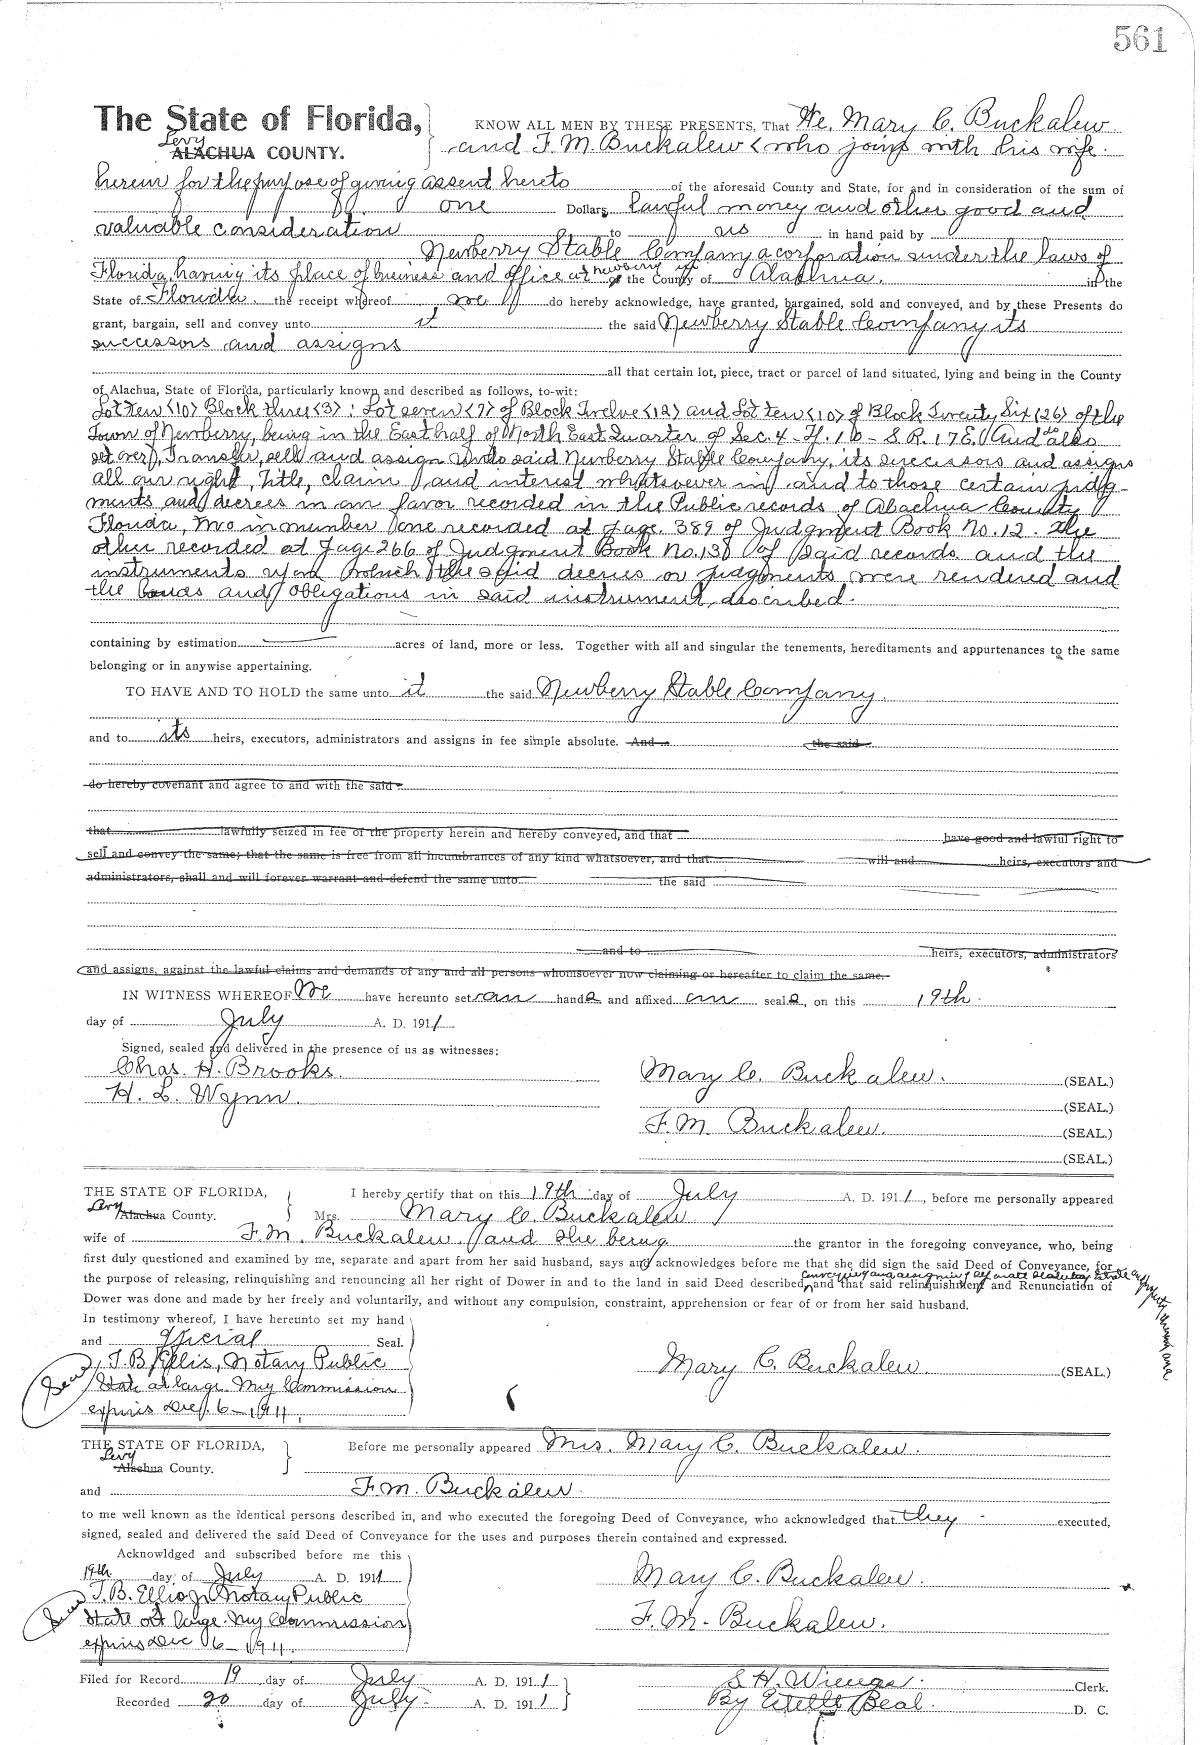 561
The State of Florida,
Levy
ALACHUA COUNTY.
KNOW ALL MEN BY THESE PRESENTS, That We, Mary C. Buckalew
and F. M. Buckalew (who joins with his wife
herein for the purpose of giving assent hereto of the aforesaid County and State, for and in consideration of the sum of
one Dollars, lawful money and other good and
valuable consideration to us in hand paid by
Newberry Stable Company a corporation under the laws of
Florida, having its place of business and office at Newberry in the County of Alachua. in the
State of Florida. the receipt whereof we do hereby acknowledge, have granted, bargained, sold and conveyed, and by these Presents do
grant, bargain, sell and convey unto it the said Newberry Stable Company its
successors and assigns
all that certain lot, piece, tract or parcel of land situated, lying and being in the County
of Alachua, State of Florida, particularly known and described as follows, to-wit:
Lot ten (10) Block three (3): Lot seven (7) of Block Twelve (12) and Lot ten (10) of Block Twenty Six (26) of the
Town of Newberry, being in the East half of North East Quarter of Sec. 4 - T. 10 - S R. 17 E. And do also
set over, Transfer, sell and assign unto said Newberry Stable Company, its successors and assigns
all our right, title, claim and interest whatsoever in and to those certain judg-
ments and decrees in our favor recorded in the Public records of Alachua County
Florida, two in number one recorded at page 389 of Judgment Book No. 12. the
other recorded at page 266 of Judgment Book No. 13 of said records and the
instruments upon which the said decrees or judgments were rendered and
the and obligations in said instrument described.
containing by estimation acres of land, more or less. Together with all and singular the tenements, hereditaments and appurtenances to the same
belonging or in anywise appertaining.
TO HAVE AND TO HOLD the same unto it the said Newberry Stable Company
and to its heirs, executors, administrators and assigns in fee simple absolute. And the said
do hereby covenant and agree to and with the said
that lawfully seized in fee of the property herein and hereby conveyed, and that have good and lawful right to
sell and convey the same; that the same is free from all incumbrances of any kind whatsoever, and that will and heirs, executors and
administrators, shall and will forever warrant and defend the same unto the said
and to heirs, executors, administrators
and assigns, against the lawful claims and demands of any and all persons whomsoever now claiming or hereafter to claim the same.
IN WITNESS WHEREOF We have hereunto set our hands and affixed our seals, on this 19th.
day of July A. D. 1911.
Signed, sealed and delivered in the presence of us as witnesses:
Chas. H. Brooks.
H. L. Wynn.
Mary C. Buckalew. (SEAL.)
(SEAL.)
F. M. Buckalew. (SEAL.)
(SEAL.)
THE STATE OF FLORIDA,
Levy
Alachua County.
I hereby certify that on this 19th day of July A. D. 1911, before me personally appeared
Mrs. Mary C. Buckalew
wife of F. M. Buckalew. and she being the grantor in the foregoing conveyance, who, being
first duly questioned and examined by me, separate and apart from her said husband, says and acknowledges before me that she did sign the said Deed of Conveyance, for
conveying and assigning of separate statutory estate or property therein and
the purpose of releasing, relinquishing and renouncing all her right of Dower in and to the land in said Deed described, and that said relinquishment and Renunciation of
Dower was done and made by her freely and voluntarily, and without any compulsion, constraint, apprehension or fear of or from her said husband.
In testimony whereof, I have hereunto set my hand
and official Seal.
Seal
T. B. Ellis, Notary Public
State at large. My Commission
expires Dec. 6 - 1911.
Mary C. Buckalew. (SEAL.)
THE STATE OF FLORIDA,
Levy
Alachua County.
Before me personally appeared Mrs. Mary C. Buckalew.
and F. M. Buckalew.
to me well known as the identical persons described in, and who executed the foregoing Deed of Conveyance, who acknowledged that they executed,
signed, sealed and delivered the said Deed of Conveyance for the uses and purposes therein contained and expressed.
Acknowldged and subscribed before me this
19th day of July A. D. 1911
Seal
T. B. Ellis Jr Notary Public
State at large. My Commission
expires Dec 6 - 1911.
Mary C. Buckalew.
F. M. Buckalew.
Filed for Record 19 day of July A. D. 1911
Recorded 20 day of July A. D. 1911
S. H. Wienges. Clerk.
By Estelle Beal. D. C.